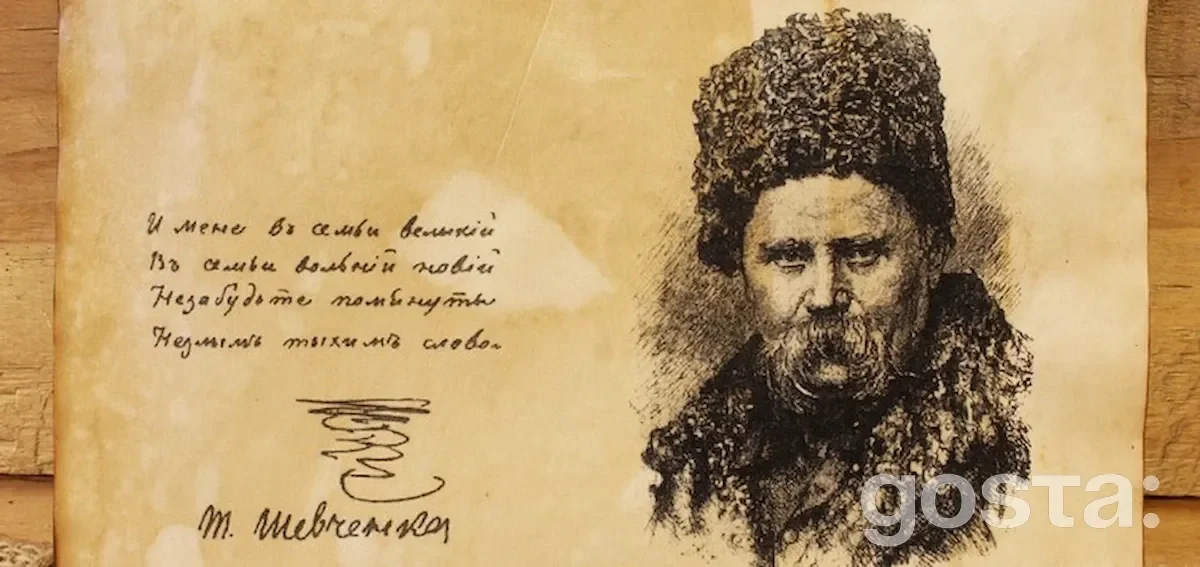 И мене въ семьи великій
Въ семьи вольній новій
Незабудьте помянуты
Незлымъ тыхимъ слово.
Т. Шевченка
gosta: